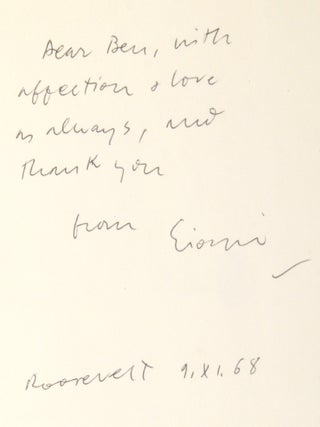 Dear Ben, with
affection & love
as always, and
thank you
from
Roosevelt 9.XI.68